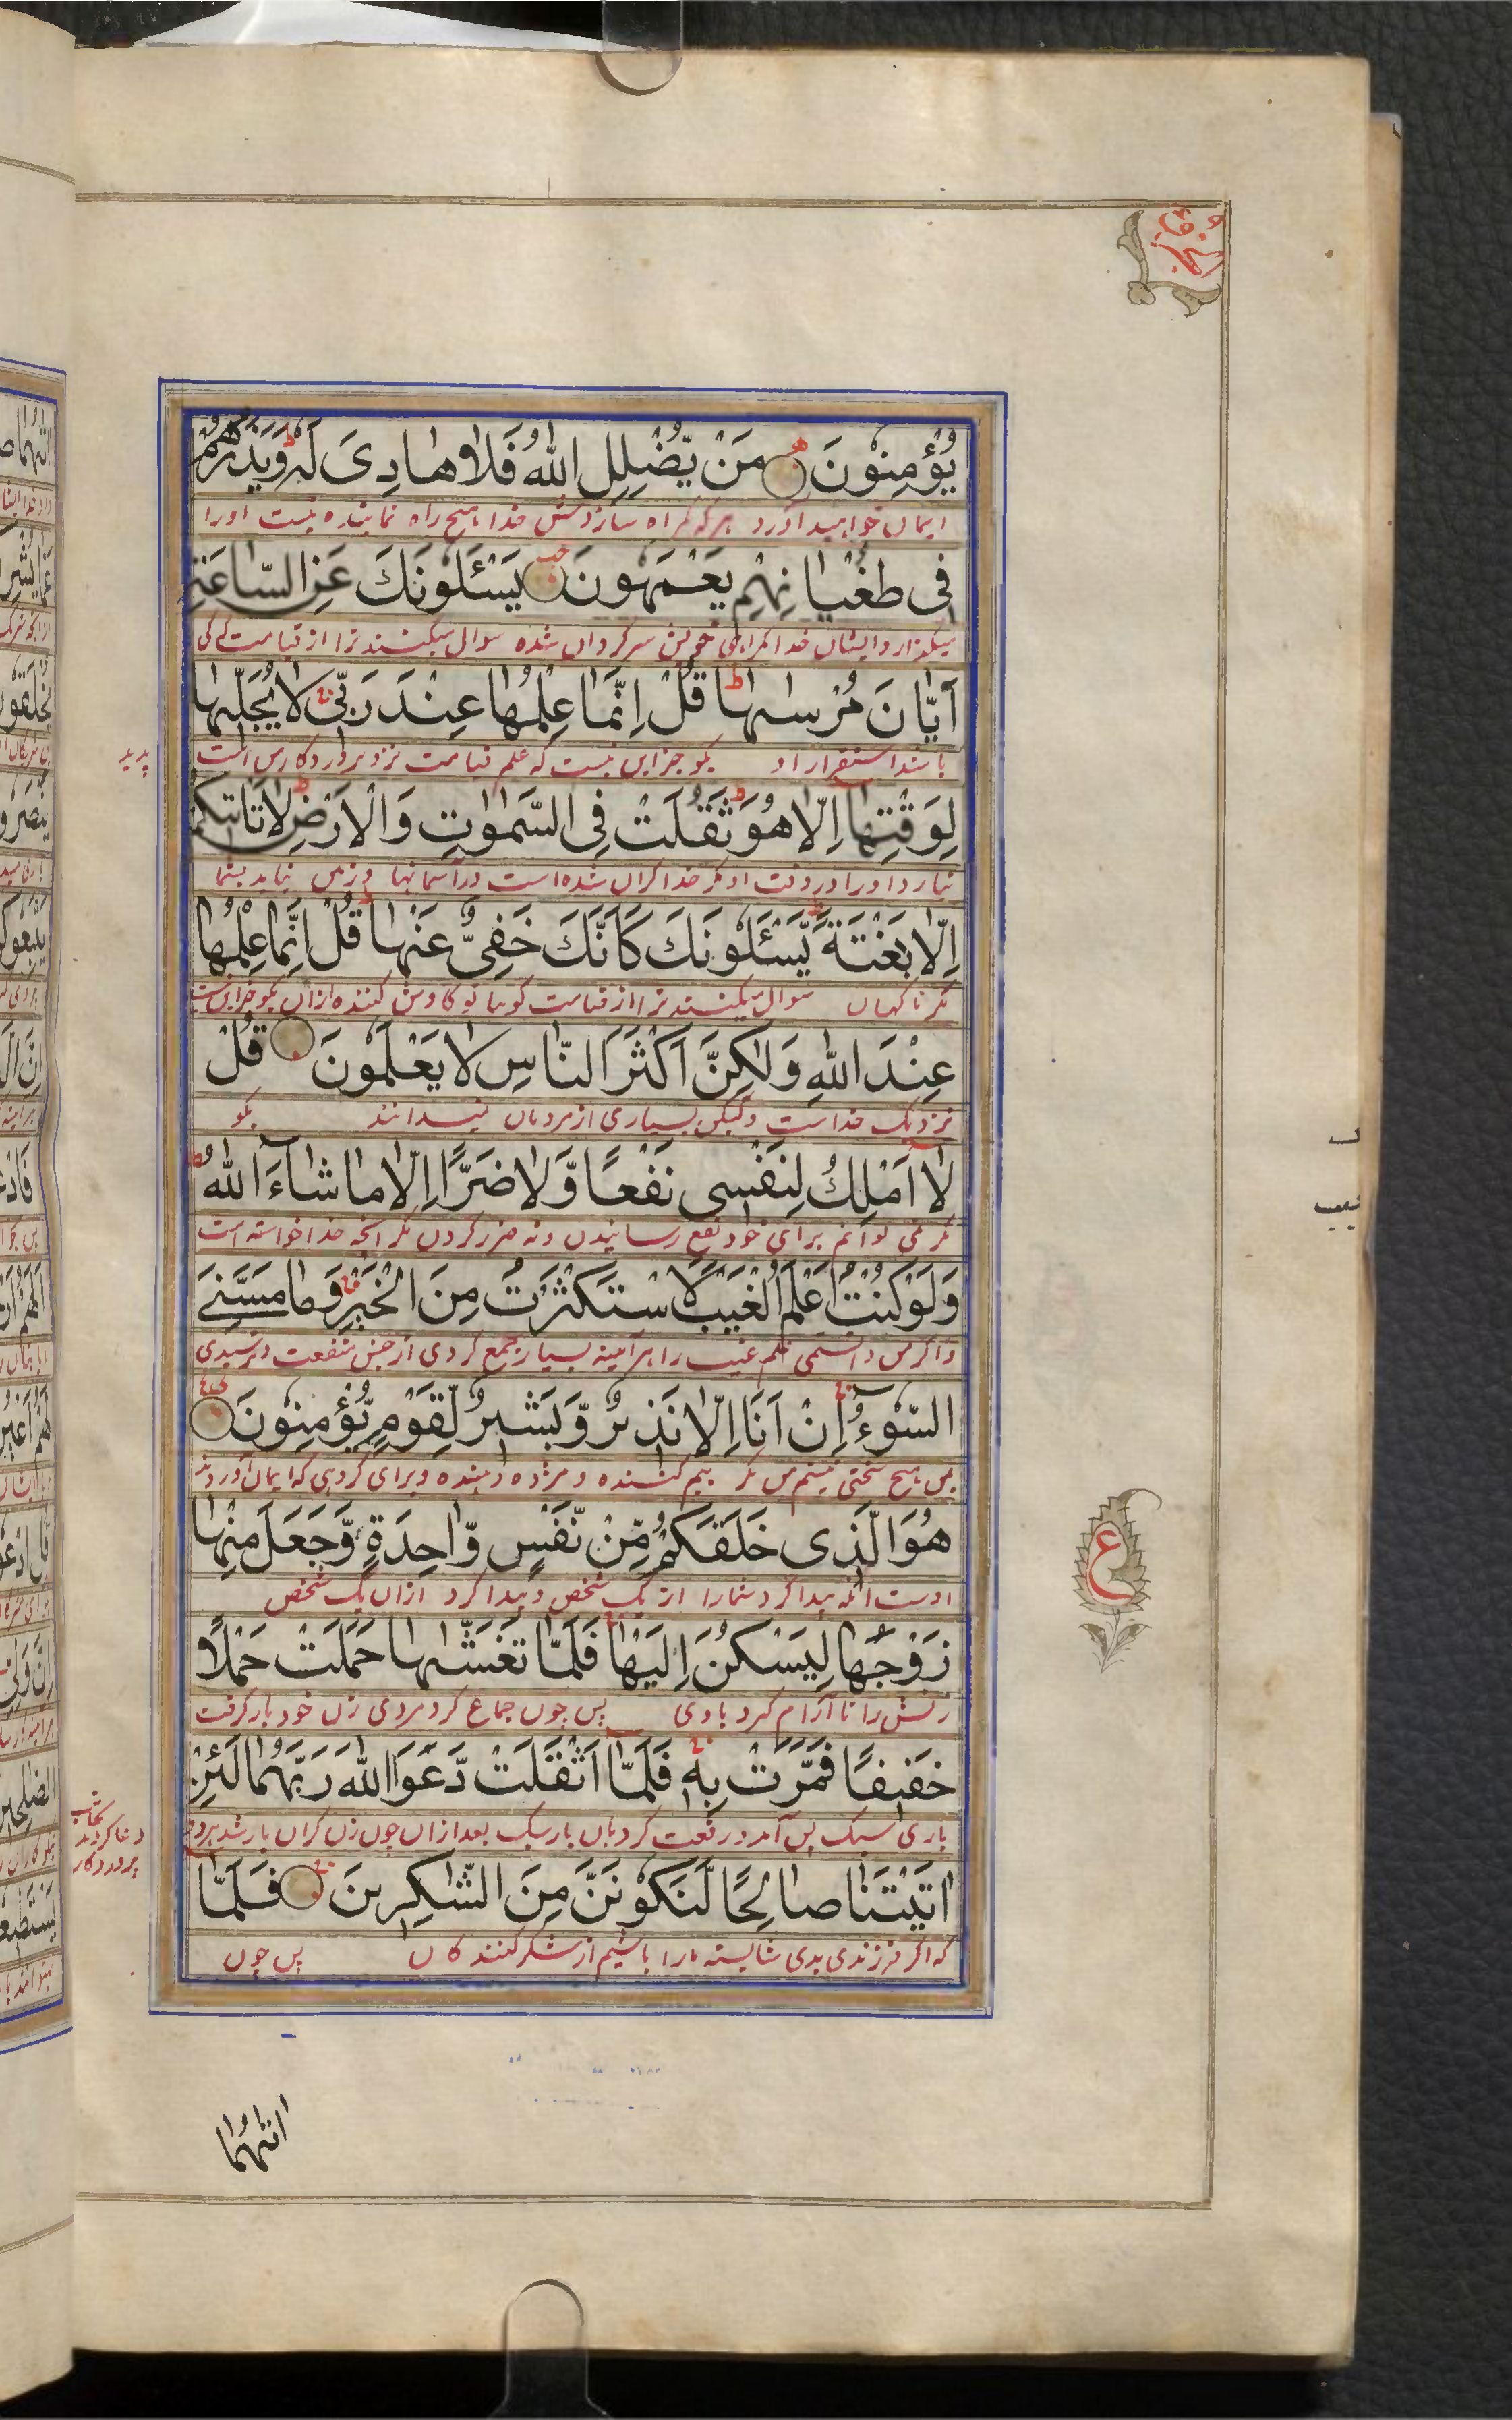 يُؤْمِنُوْنَ مَنْ يُّضْلِلِ اللّٰهُ فَلَا هَادِىَ لَهٗ وَيَذَرُهُمْ
ایمان خواهید آورد هرکه گمراه سازدش خدا هیچ راه نماینده نیست اورا
فِى طُغْيَانِهِمْ يَعْمَهُوْنَ يَسْـَٔلُوْنَكَ عَنِ السَّاعَةِ
میگذارد ایشان خدا گمراهی خویش سرگردان شده سوال میکنند ترا از قیامت که کی
اَيَّانَ مُرْسٰهَا قُلْ اِنَّمَا عِلْمُهَا عِنْدَ رَبِّى لَا يُجَلِّيْهَا
باشد استقرار او بگو جز این نیست که علم قیامت نزد پروردگار من است
پدید
لِوَقْتِهَا اِلَّا هُوَ ثَقُلَتْ فِى السَّمٰوٰتِ وَالْاَرْضِ لَا تَاْتِيْكُمْ
نیارد اورا در وقت او مگر خدا گران شده است در آسمانها و زمین نیاید بشما
اِلَّا بَغْتَةً يَّسْـَٔلُوْنَكَ كَاَنَّكَ حَفِىٌّ عَنْهَا قُلْ اِنَّمَا عِلْمُهَا
مگر ناگهان سوال میکنند ترا از قیامت گویا تو کاوش کننده ازان بگو جز این نیست
عِنْدَ اللّٰهِ وَلٰكِنَّ اَكْثَرَ النَّاسِ لَا يَعْلَمُوْنَ قُلْ
نزدیک خداست ولیکن بسیاری از مردمان نمیدانند بگو
لَا اَمْلِكُ لِنَفْسِى نَفْعًا وَّلَا ضَرًّا اِلَّا مَا شَآءَ اللّٰهُ
نمی توانم برای خود نفع رسانیدن ونه ضرر کردن مگر انچه خدا خواسته است
وَلَوْ كُنْتُ اَعْلَمُ الْغَيْبَ لَاسْتَكْثَرْتُ مِنَ الْخَيْرِ وَمَا مَسَّنِىَ
واگر من دانستمی علم غیب را هر آیینه بسیار جمع کردی از جنس منفعت و نرسیدی
السُّوْٓءُ اِنْ اَنَا اِلَّا نَذِيْرٌ وَّبَشِيْرٌ لِّقَوْمٍ يُّؤْمِنُوْنَ
بمن هیچ سختی نیستم من مگر بیم کننده و مژده دهنده وبرای گروهی که ایمان آوردند
هُوَ الَّذِى خَلَقَكُمْ مِّنْ نَّفْسٍ وَّاحِدَةٍ وَّجَعَلَ مِنْهَا
اوست انکه پیدا کرد شمارا از یک شخص و پیدا کرد ازان یک شخص
زَوْجَهَا لِيَسْكُنَ اِلَيْهَا فَلَمَّا تَغَشّٰهَا حَمَلَتْ حَمْلًا
زنش را تا آرام گیرد باوی پس چون جماع کرد مردی زن خود بار گرفت
خَفِيْفًا فَمَرَّتْ بِهٖ فَلَمَّا اَثْقَلَتْ دَّعَوَا اللّٰهَ رَبَّهُمَا لَئِنْ
باری سبک پس آمد ورفت کرد بان بار سبک بعد ازان چون زن گران بار شد هردو
دعا کردند
پروردگار
اٰتَيْتَنَا صَالِحًا لَّنَكُوْنَنَّ مِنَ الشّٰكِرِيْنَ فَلَمَّا
که اگر فرزندی بدی شایسته مارا باشیم از شکر کنندگان پس چون
ع
اٰتٰهُمَا